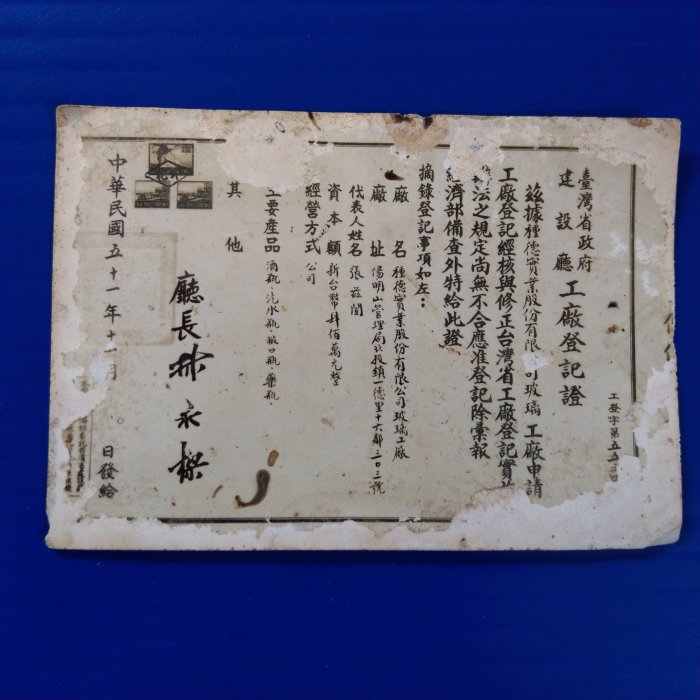 臺灣省政府
建設廳
工廠登記證
工登字第五五
茲據種德實業股份有限公司玻璃工廠申請
工廠登記經核與修正台灣省工廠登記實
法之規定尚無不合應准登記除彙報
經濟部備查外特給此證
摘錄登記事項如左：
廠名 種德實業股份有限公司玻璃工廠
廠址 陽明山管理局北投鎮一德里十六鄰三０三號
代表人姓名 張茲闓
資本額 新台幣肆佰萬元整
經營方式 公司
主要產品 酒瓶、汽水瓶、敝口瓶、藥瓶、
其他
廳長林永樑
中華民國五十一年十一月 日發給